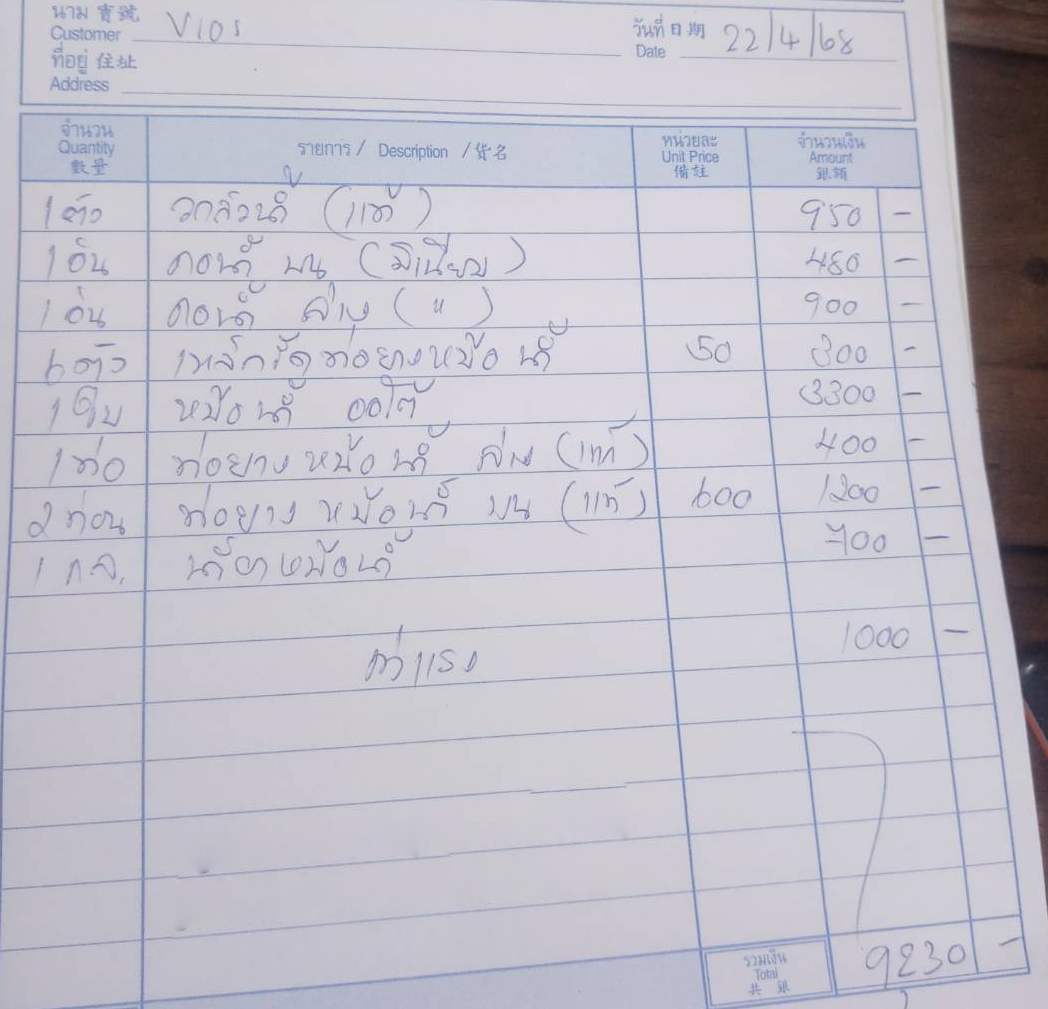 นาม 寶號
Customer Vios
วันที่ 日期
Date 22/4/68
ที่อยู่ 住址
Address
จำนวน Quantity 數量 รายการ / Description / 貨名 หน่วยละ Unit Price 備註 จำนวนเงิน Amount 銀額
1 ตัว วาล์วน้ำ (แท้) 950 -
1 อัน คอน้ำ บน (มิเนียม) 480 -
1 อัน คอน้ำ ล่าง ( " ) 900 -
6 ตัว เหล็กรัดท่อยางหม้อน้ำ 50 300 -
1 ใบ หม้อน้ำ ออโต้ 3300 -
1 ท่อ ท่อยางหม้อน้ำ ล่าง (แท้) 400 -
2 ท่อน ท่อยาง หม้อน้ำ บน (แท้) 600 1200 -
1 กล. น้ำยาหม้อน้ำ 700 -
ค่าแรง 1000 -
รวมเงิน Total 共銀 9230 -